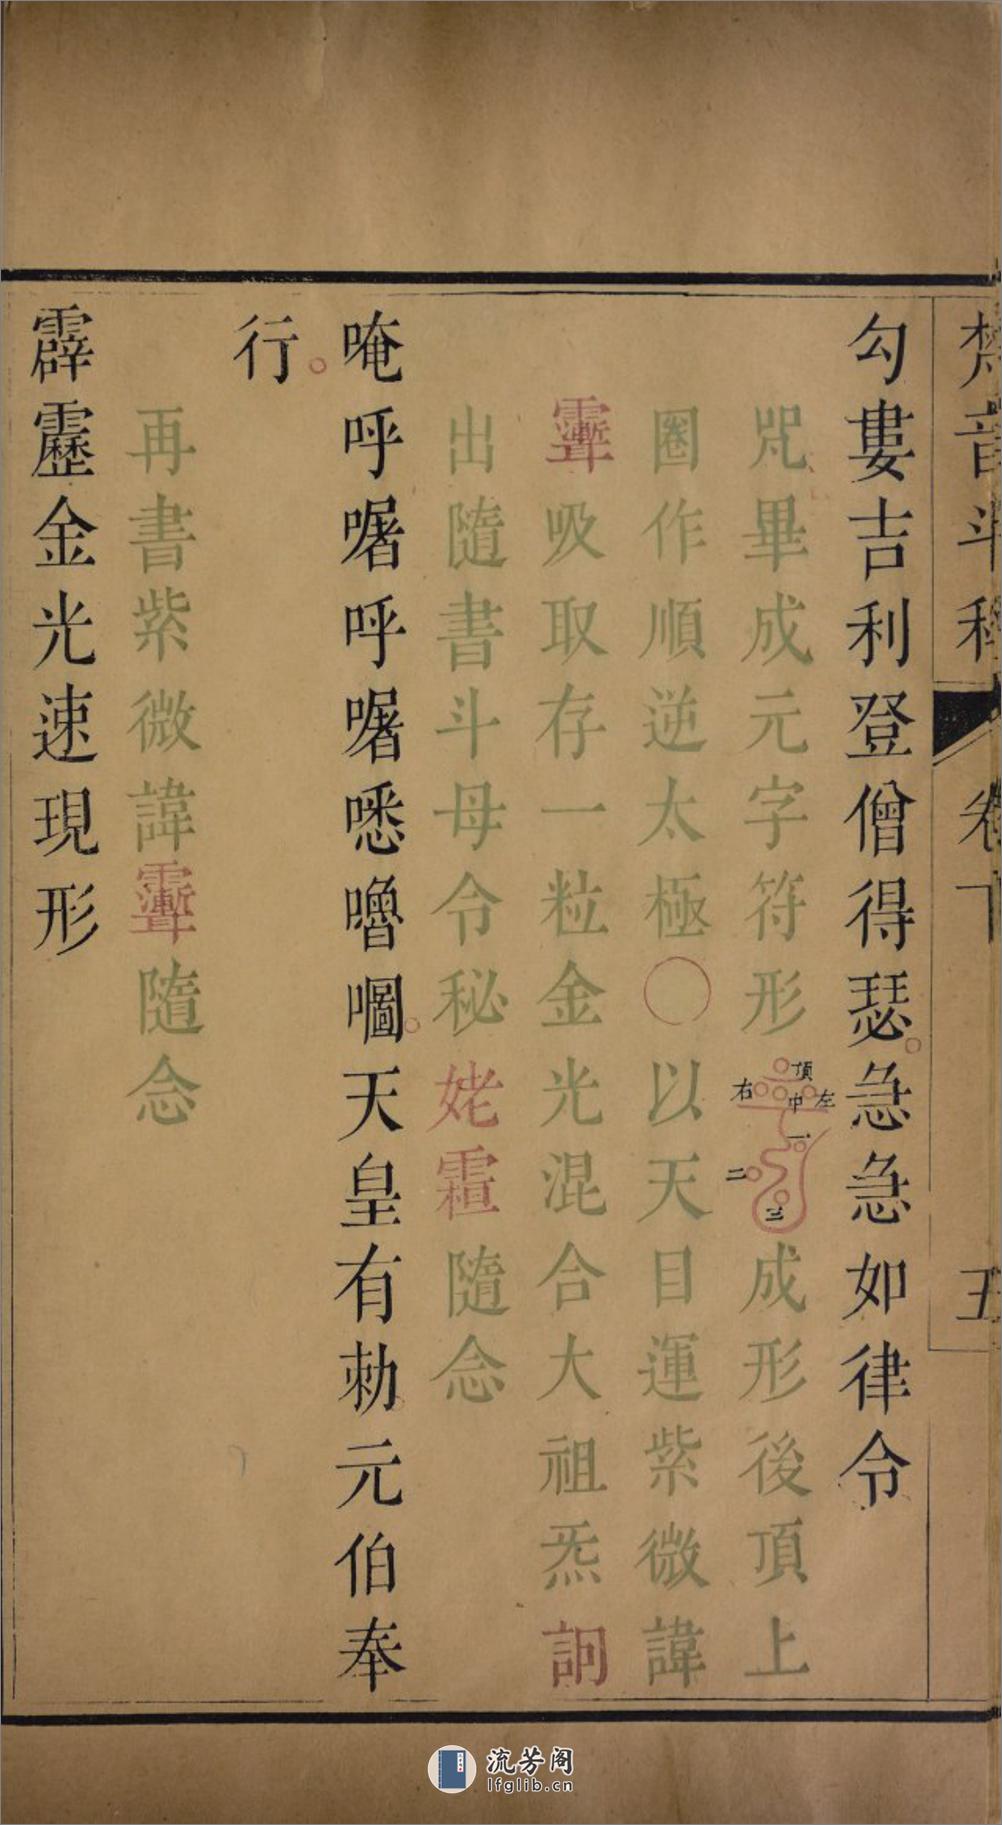 梵音斗科 卷下 五
勾婁吉利登僧得瑟急急如律令
咒畢成元字符形 頂 左 中 右 一 二 三 成形後頂上
圈作順逆太極〇以天目運紫微諱
吸取存一粒金光混合大祖炁訶
出隨書斗母令秘姥霻隨念
唵呼喏呼喏悉嚕嘓天皇有勑元伯奉
行
再書紫微諱隨念
霹靂金光速現形
流芳阁
lfglib.cn